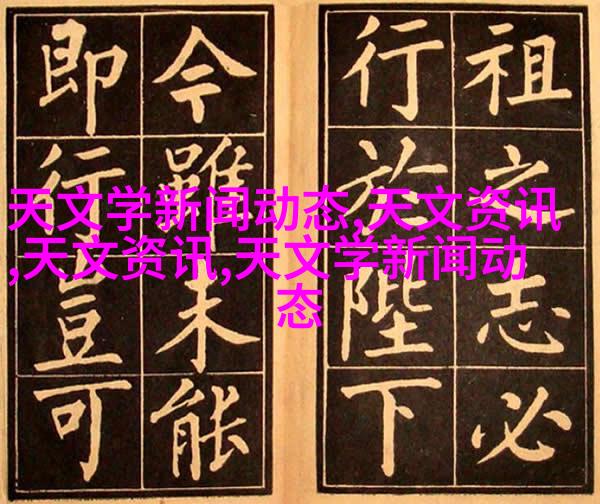 天文学新闻动态,天文资讯
,天文资讯,天文学新闻动
态
祖之志必
行於陛下
今雖未能
即行豈可